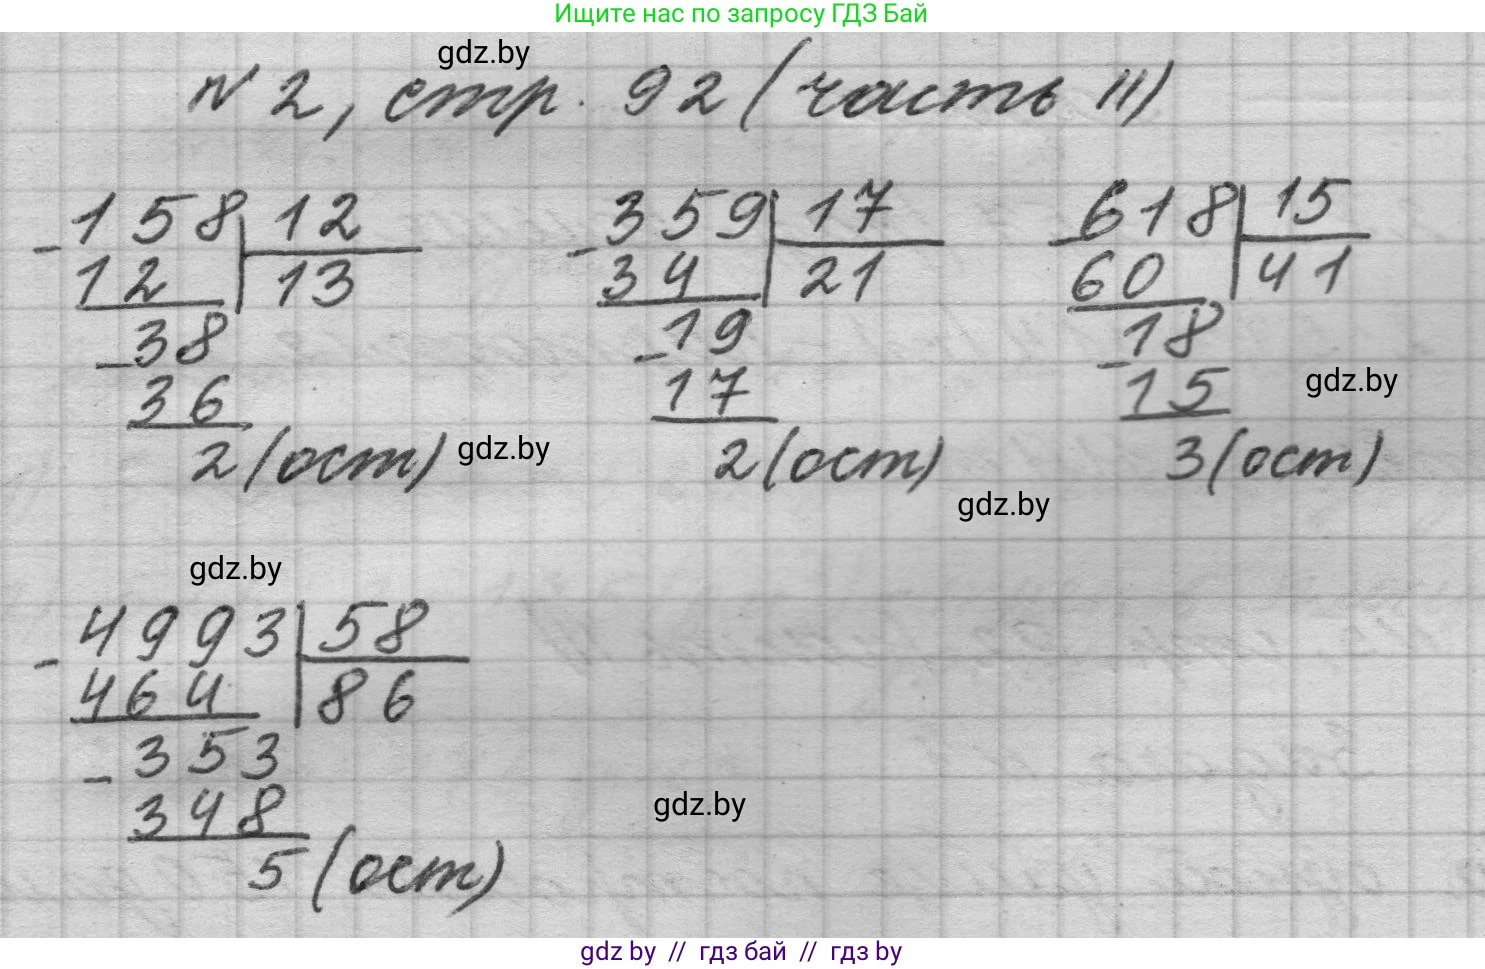 Ищите нас по запросу ГДЗ Бай
gdz.by
N 2, стр. 92 (часть II)
- 158 | 12
12 | 13
- 38
36
2 (ост)
gdz.by
- 359 | 17
34 | 21
- 19
17
2 (ост)
gdz.by
- 618 | 15
60 | 41
- 18
15
3 (ост)
gdz.by
gdz.by
- 4993 | 58
464 | 86
- 353
348
5 (ост)
gdz.by
gdz by // гдз бай // гдз by